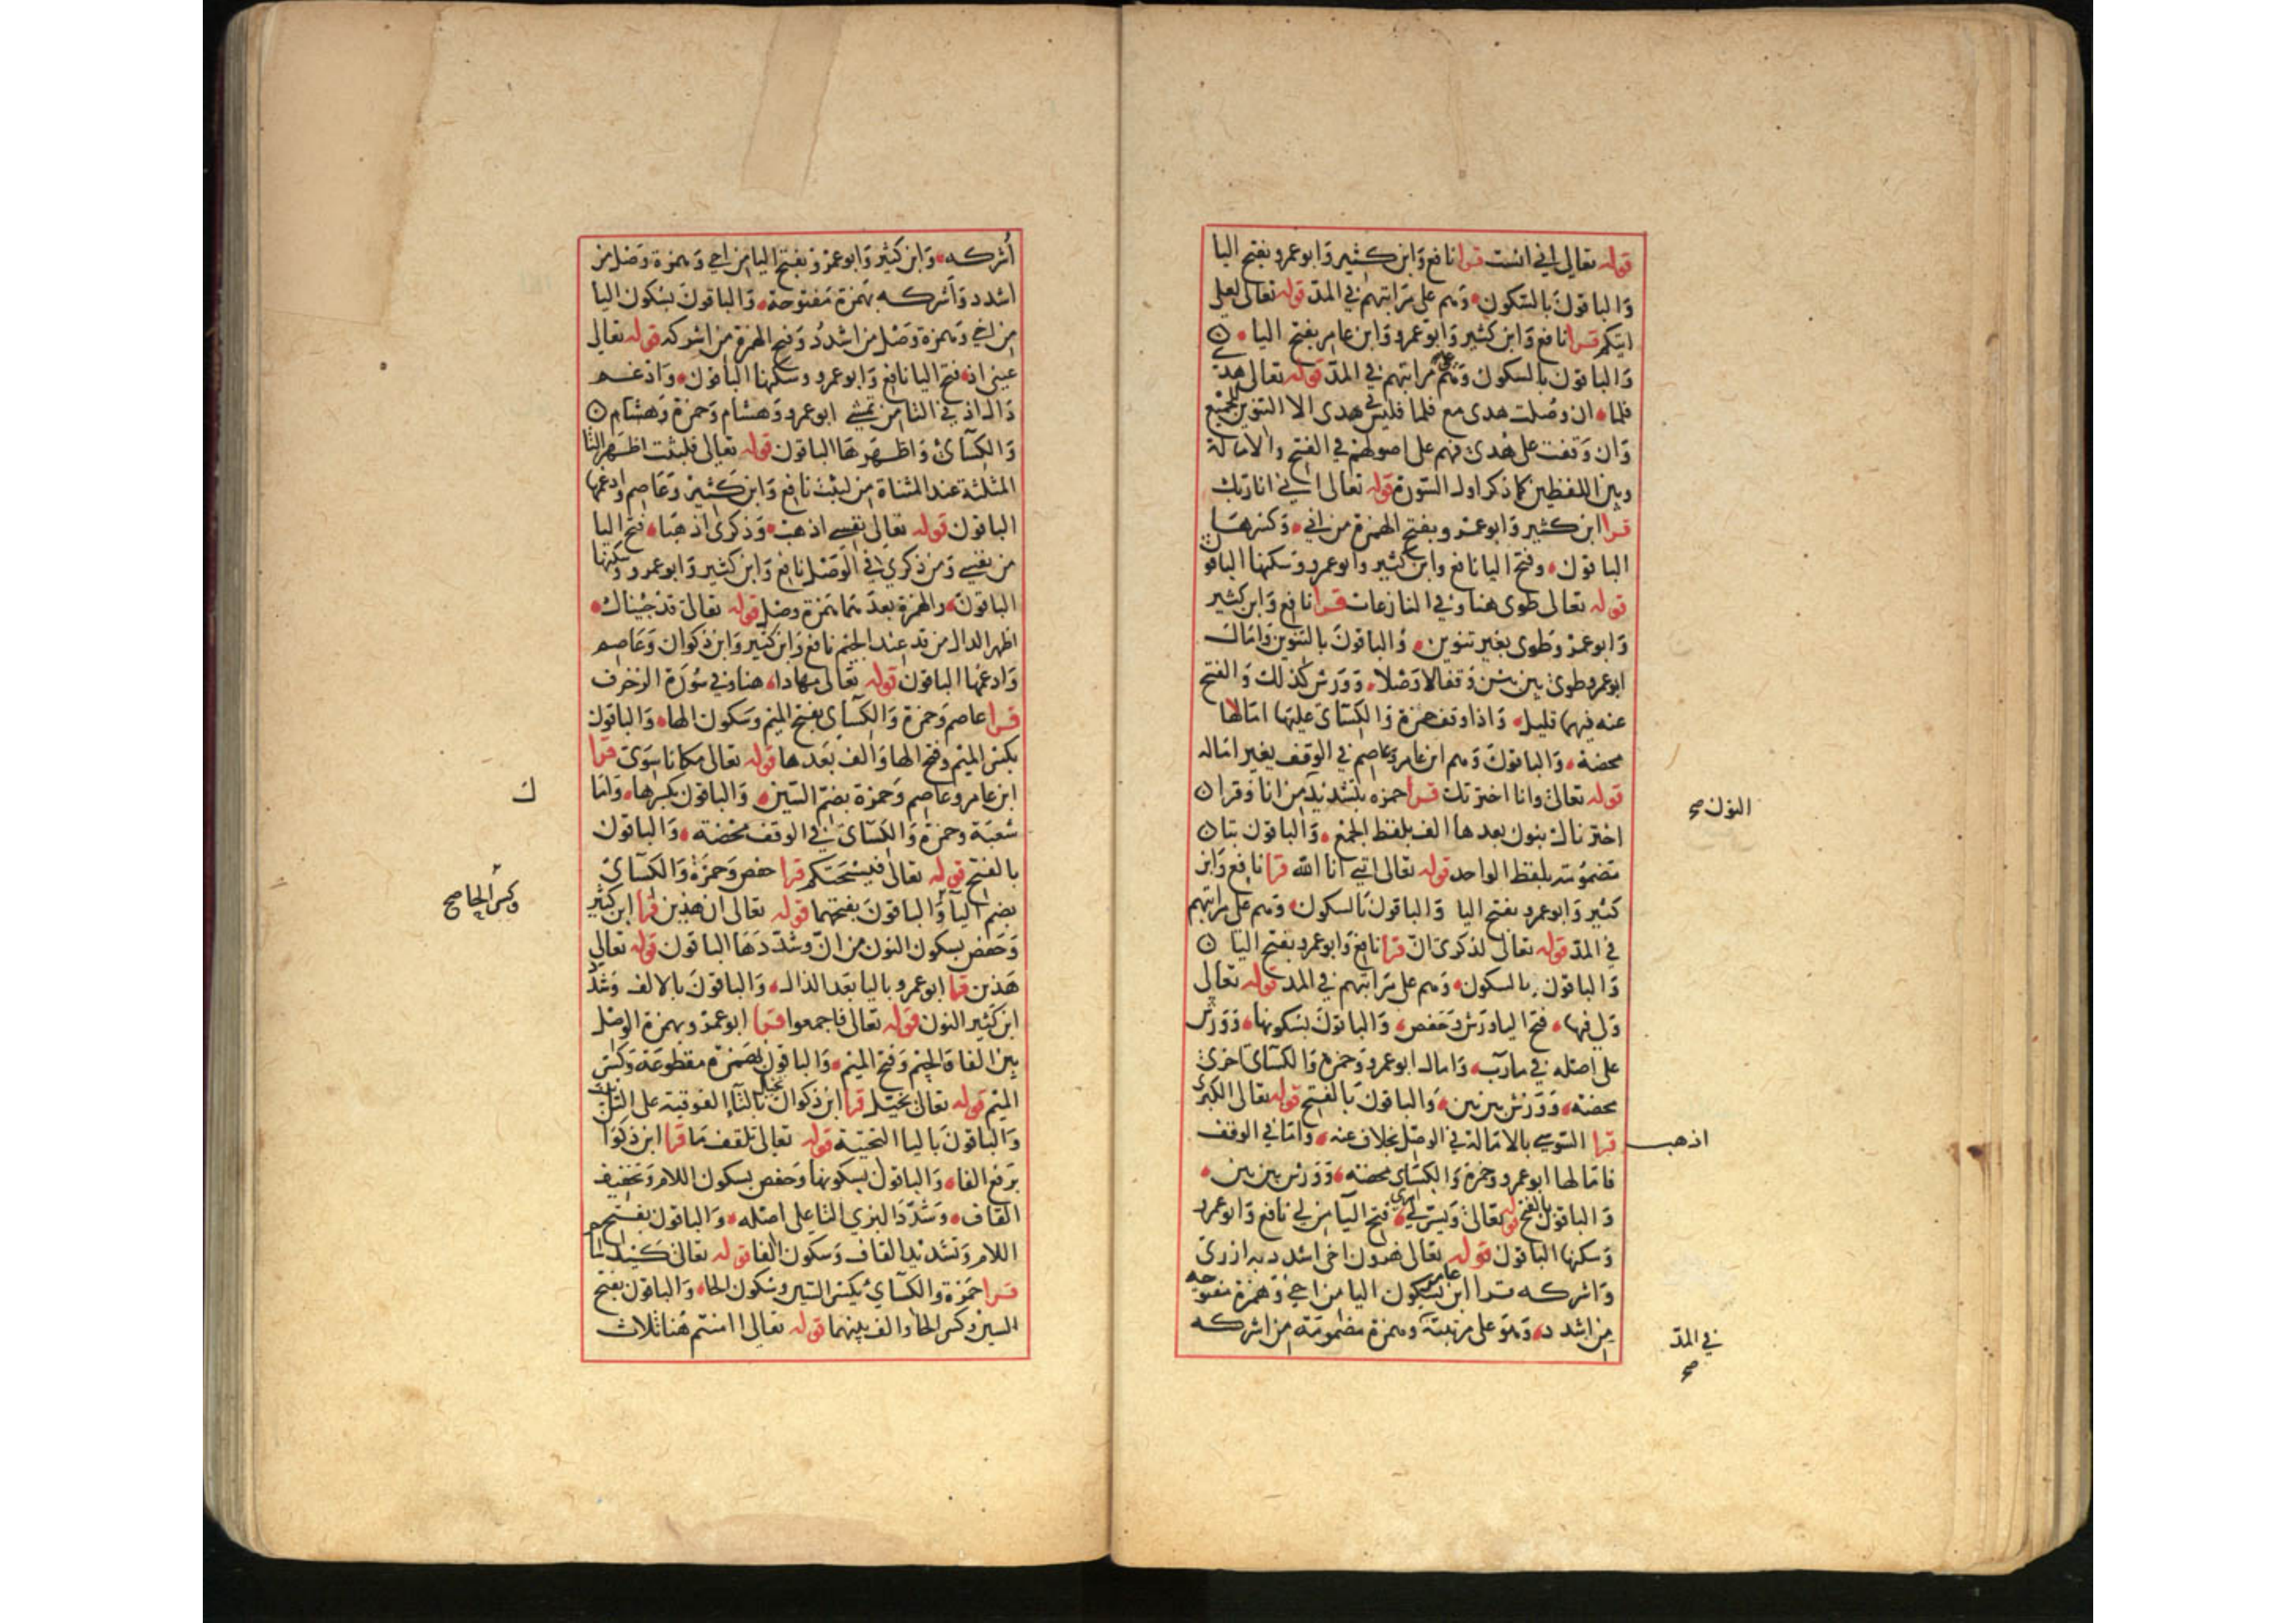 قوله تعالى اني انست قرا نافع وابن كثير وابو عمرو بفتح اليا
والباقون بالسكون وهم على مراتبهم في المد قوله تعالى لعلي
اتيكم قرا نافع وابن كثير وابو عمرو وابن عامر بفتح اليا
والباقون بالسكون وهم على مراتبهم في المد قوله تعالى هدى
فلما ان وصلت هدى مع فلما فليس في هدى الا التنوين للجميع
وان وقفت على هدى فهم على اصولهم في الفتح والامالة
وبين اللفظين كما ذكر اول السورة قوله تعالى اني انا ربك
قرا ابن كثير وابو عمرو بفتح الهمزة من اني وكسرها
الباقون وفتح اليا نافع وابن كثير وابو عمرو وسكنها الباقون
قوله تعالى طوى هنا وفي النازعات قرا نافع وابن كثير
وابو عمرو وطوى بغير تنوين والباقون بالتنوين وامال
ابو عمرو طوى بين بين وقفا لا وصلا وورش كذلك والفتح
عنه فيهما قليل واذا وقف حمزة والكسائى عليها امالاها
محضة والباقون وهم ابن عامر وعاصم في الوقف بغير اماله
قوله تعالى وانا اخترتك قرا حمزه بتشديد النون صح من انا وقرا
اخترناك بنون بعدها الف بلفظ الجمع والباقون بتا
مضمومة بلفظ الواحد قوله تعالى انني انا الله قرا نافع وابن
كثير وابو عمرو بفتح اليا والباقون بالسكون وهم على مراتبهم
في المد قوله تعالى لذكرى ان قرا نافع وابو عمرو بفتح اليا
والباقون بالسكون وهم على مراتبهم في المد قوله تعالى
ولي فيها فتح اليا ورش وحفص والباقون بسكونها وورش
على اصله في مآرب وامال ابو عمرو وحمزة والكسائى اخرى
محضة وورش بين بين والباقون بالفتح قوله تعالى الكبرى
اذهب قرا السوسي بالامالة في الوصل بخلاف عنه واما في الوقف
فامالها ابو عمرو وحمزة والكسائي محضه وورش بين بين
والباقون بالفتح قوله تعالى ويسر لي امري فتح اليا من لي نافع وابو عمرو
وسكنها الباقون قوله تعالى هرون اخى اشدد به ازرى
واشركه قرا ابن عامر بسكون اليا من اخي وهمزة مفتوحه
من اشدد وهو على مرتبته في المد صح وبهمزة مضمومة من اشركه
أشركه وابن كثير وابو عمرو وبفتح اليا من اخي وبهمزة وصل من
اشدد وأشركه بهمزة مفتوحة والباقون بسكون اليا
من اخي وبهمزة وصل من اشدد وفتح الهمزة من اشركه قوله تعالى
عيني اذ فتح اليا نافع وابو عمرو وسكنها الباقون وادغم
ذال اذ في التا من تمشي ابو عمرو وهشام وحمزة وهشام
والكسآئ واظهرها الباقون قوله تعالى فلبثت اظهر الثا
المثلثة عند المثناة من لبثت نافع وابن كثير وعاصم وادغمها
الباقون قوله تعالى نفسي اذهب وذكرى اذهبا فتح اليا
من نفسي ومن ذكري في الوصل نافع وابن كثير وابو عمرو وسكنها
الباقون والهمزة بعدهما همزة وصل قوله تعالى قد جيناك
اظهر الدال من قد عند الجيم نافع وابن كثير وابن ذكوان وعاصم
وادغمها الباقون قوله تعالى مهادا هنا وفي سورة الزخرف
قرا عاصم وحمزة والكسآى بفتح الميم وسكون الها والباقون
بكسر الميم وفتح الها والف بعدها قوله تعالى مكانا سوى قرا
ابن عامر وعاصم وحمزة بضم السين والباقون بكسرها وامال
شعبة وحمزة والكسآى في الوقف محضة والباقون
بالفتح قوله تعالى فيسحتكم قرا حفص وحمزة والكسآى
بضم اليا وكسر الحا صح والباقون بفتحهما قوله تعالى ان هذين قرا ابن كثير
وحفص بسكون النون من ان وشددها الباقون قوله تعالى
هذين قرا ابو عمرو باليا بعد الذال والباقون بالالف وشدد
ابن كثير النون قوله تعالى فاجمعوا قرا ابو عمرو بهمزة الوصل
بين الفا والجيم وفتح الميم والباقون بهمزة مقطوعة وكسر
الميم قوله تعالى يخيل قرا ابن ذكوان بالتآ الفوقية على التانيث
والباقون باليا التحتية قوله تعالى تلقف ما قرا ابن ذكوان
برفع الفا والباقون بسكونها وحفص بسكون اللام وتخفيف
القاف وشدد البزي التا على اصله والباقون بفتح
اللام وتشديد القاف وسكون الفا قوله تعالى كيد
قرا حمزة والكسآي بكسر السين وسكون الحا والباقون بفتح
السين وكسر الحا والف بينهما قوله تعالى اامنتم هنا ثلاث